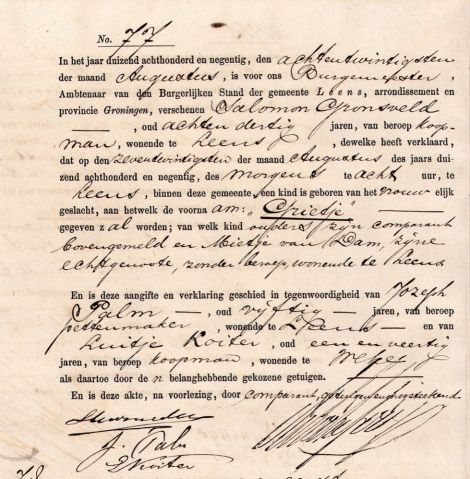 No. 77
In het jaar duizend achthonderd en negentig, den achtentwintigsten
der maand Augustus, is voor ons Burgemeester,
Ambtenaar van den Burgerlijken Stand der gemeente Leens, arrondissement en
provincie Groningen, verschenen Salomon Gronsveld
, oud achten dertig jaren, van beroep koop-
man, wonende te Leens, dewelke heeft verklaard,
dat op den zeventwintigsten der maand Augustus des jaars dui-
zend achthonderd en negentig, des morgens te acht uur, te
Leens, binnen deze gemeente, een kind is geboren van het vrouwelijk
geslacht, aan hetwelk de voorna am: "Grietje"
gegeven zal worden; van welk kind ouders zijn comparant
bovengemeld en Mietje van Dam, zijne
echtgenoote, zonder beroep, wonende te Leens
En is deze aangifte en verklaring geschied in tegenwoordigheid van Jozeph
Palm — oud vijftig — jaren, van beroep
pettenmaker, wonende te Leens — en van
Luitje Koiter, oud een en veertig
jaren, van beroep koopman, wonende te
als daartoe door de n belanghebbende gekozene getuigen.
En is deze akte, na voorlezing, door comparant, getuigen en ons geteekend
J. Palm
L Koiter
78